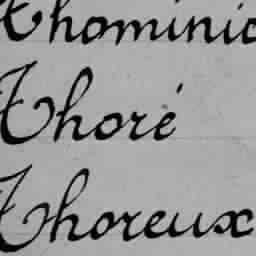 Thominic
Thoré
Thoreux